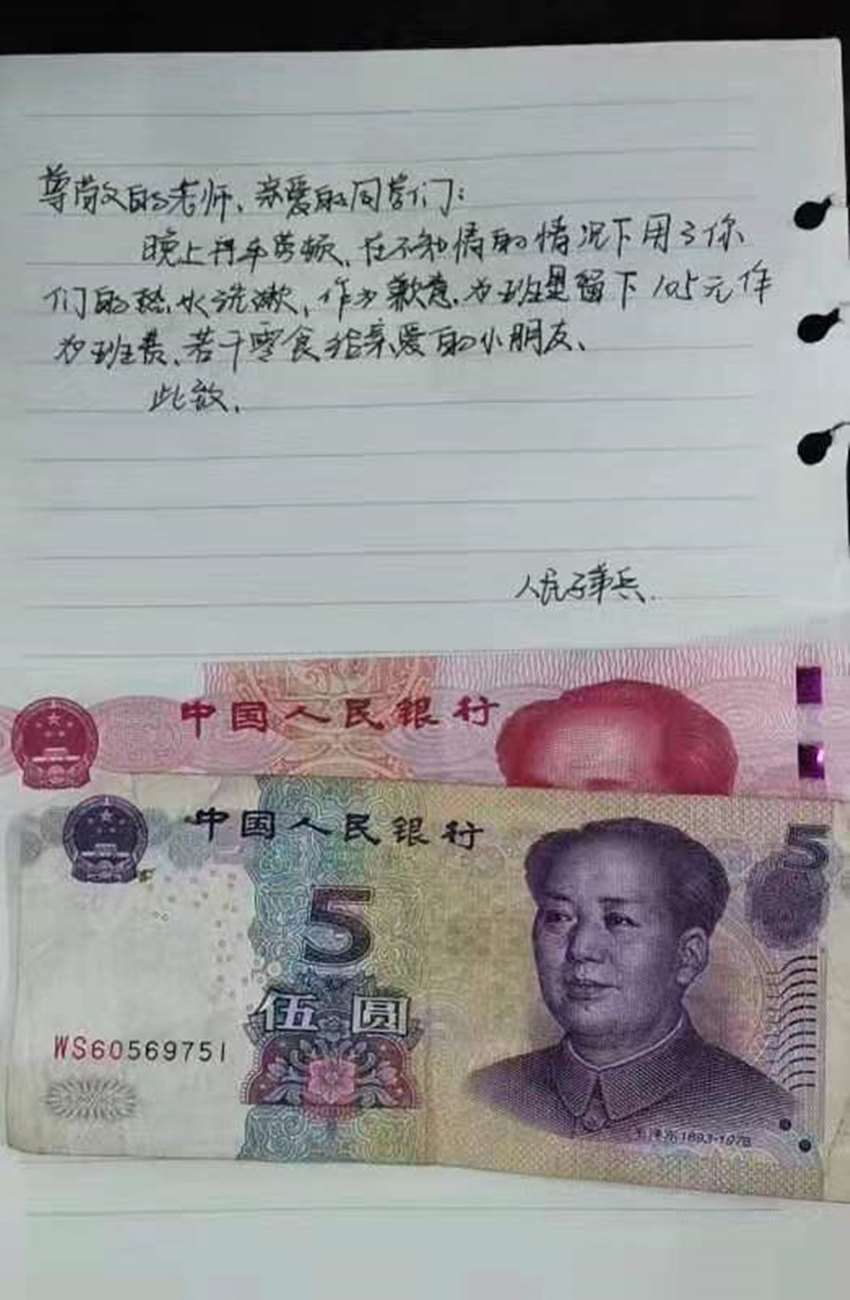 尊敬的老师、亲爱的同学们：
晚上舟车劳顿、在不知情的情况下用了你
们的水洗漱、作为歉意、为班里留下105元作
为班费、若干零食给亲爱的小朋友、
此致、
人民子弟兵.
中国人民银行
中国人民银行
5
5
伍圆
WS60569751
毛泽东1893-1976